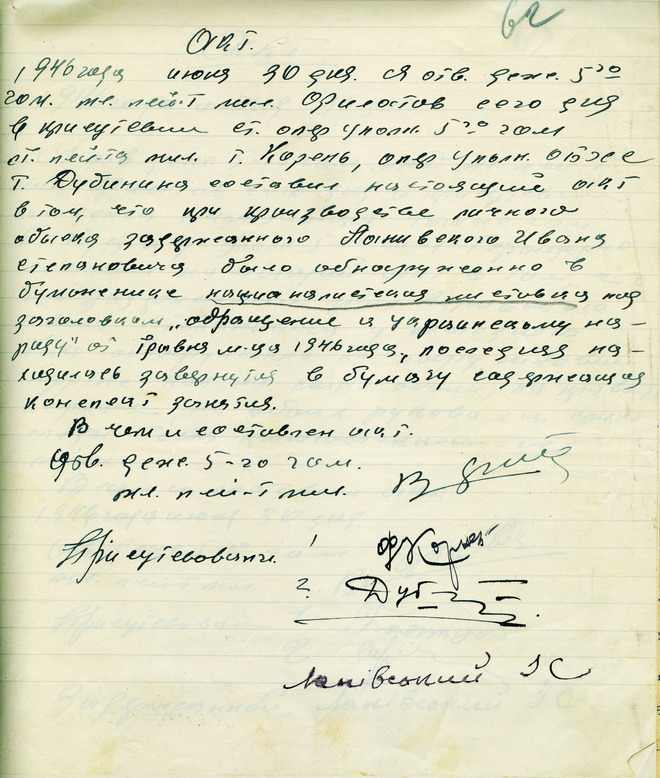 62
Акт.
1946 года июня 30 дня. Я отв. деж. 5го
гом. мл. лей-т мил. сего дня
в присутствии ст. опер уполн. 5го гом
ст. лей-та мил. т. Корень, опер уполн.
т. Дубинина составил настоящий акт
в том, что при производстве личного
обыска задержанного Ланивского Ивана
Степановича было обнаруженно в
буможенице националистская листовка под
заголовком „обращение к украинскому на-
роду" от Травня м-ца 1946 года, последняя на-
ходилась завернутая в бумагу содержащая
конспект занятия.
В чем и составлен акт.
Отв. деж. 5-го гом.
мл. лей-т мил.
Присутствовали: 1
2 Дуб
Ланівський ІС